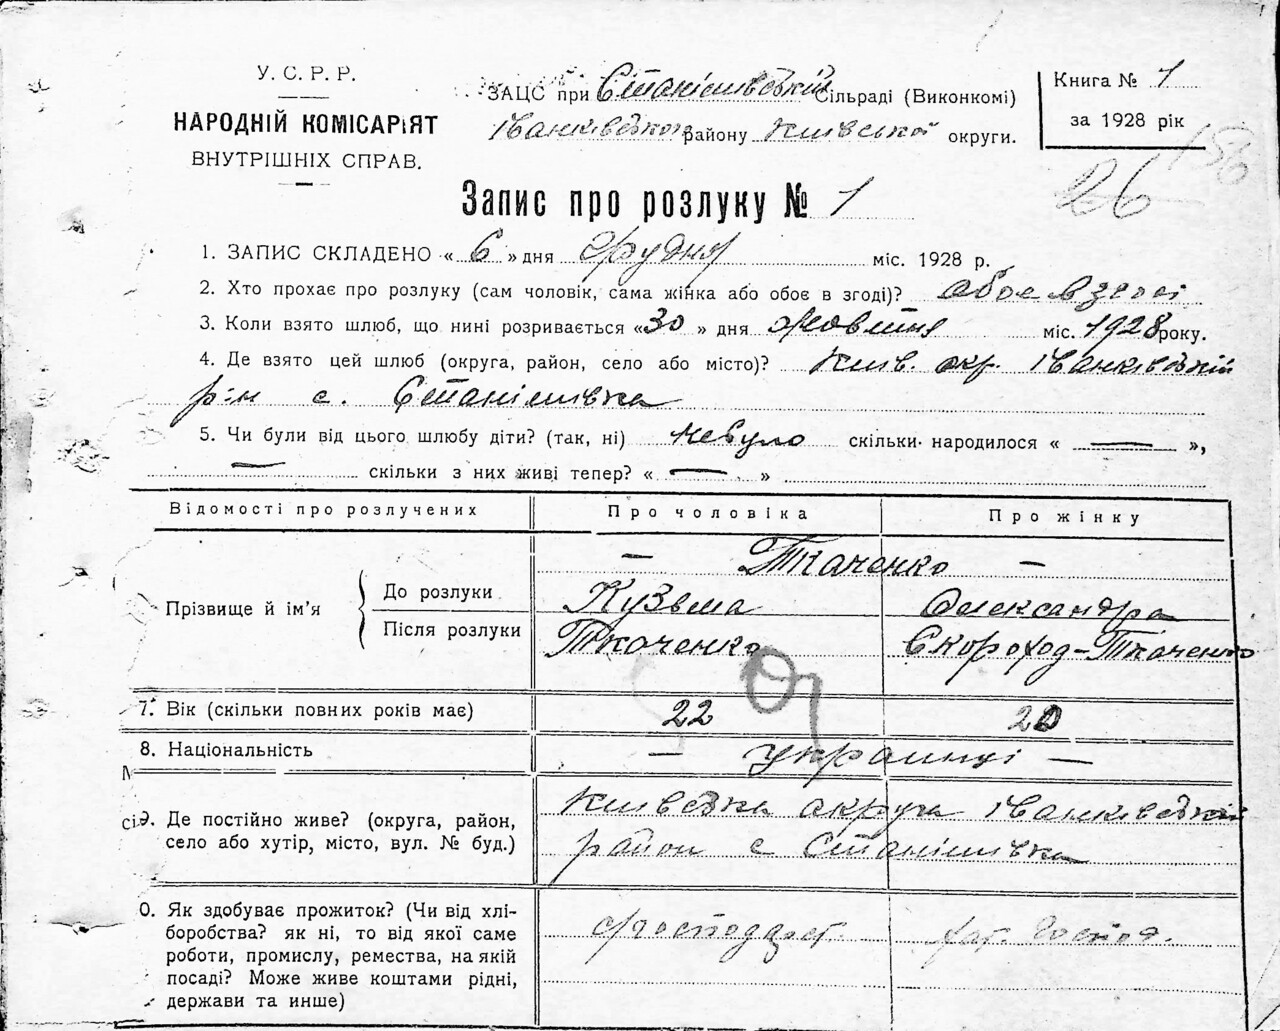 У. С. Р. Р.
НАРОДНІЙ КОМІСАРІЯТ
ВНУТРІШНІХ СПРАВ.
ЗАЦС при Станішівській Сільраді (Виконкомі)
Іванківського району Київської округи.
Книга № 1
за 1928 рік
26
Запис про розлуку № 1
1. ЗАПИС СКЛАДЕНО « 6 » дня грудня міс. 1928 р.
2. Хто прохає про розлуку (сам чоловік, сама жінка або обоє в згоді)? обоє в згоді
3. Коли взято шлюб, що нині розривається «30 » дня жовтня міс. 1928 року.
4. Де взято цей шлюб (округа, район, село або місто)? Київ. окр. Іванківській
р-н с. Станішівка
5. Чи були від цього шлюбу діти? (так, ні) небуло скільки народилося « — »,
— скільки з них живі тепер? « — »
Відомості про розлучених Про чоловіка Про жінку
— Ткаченко —
Прізвище й ім'я
До розлуки Кузьма Олександра
Після розлуки Ткаченко Скороход-Ткаченко
7. Вік (скільки повних років має) 22 20
8. Національність — українці —
9. Де постійно живе? (округа, район, Київська округа Іванківській
село або хутір, місто, вул. № буд.) район с Станішівка
0. Як здобуває прожиток? (Чи від хлі-
боробства? як ні, то від якої саме
роботи, промислу, ремества, на якій
посаді? Може живе коштами рідні,
держави та инше)